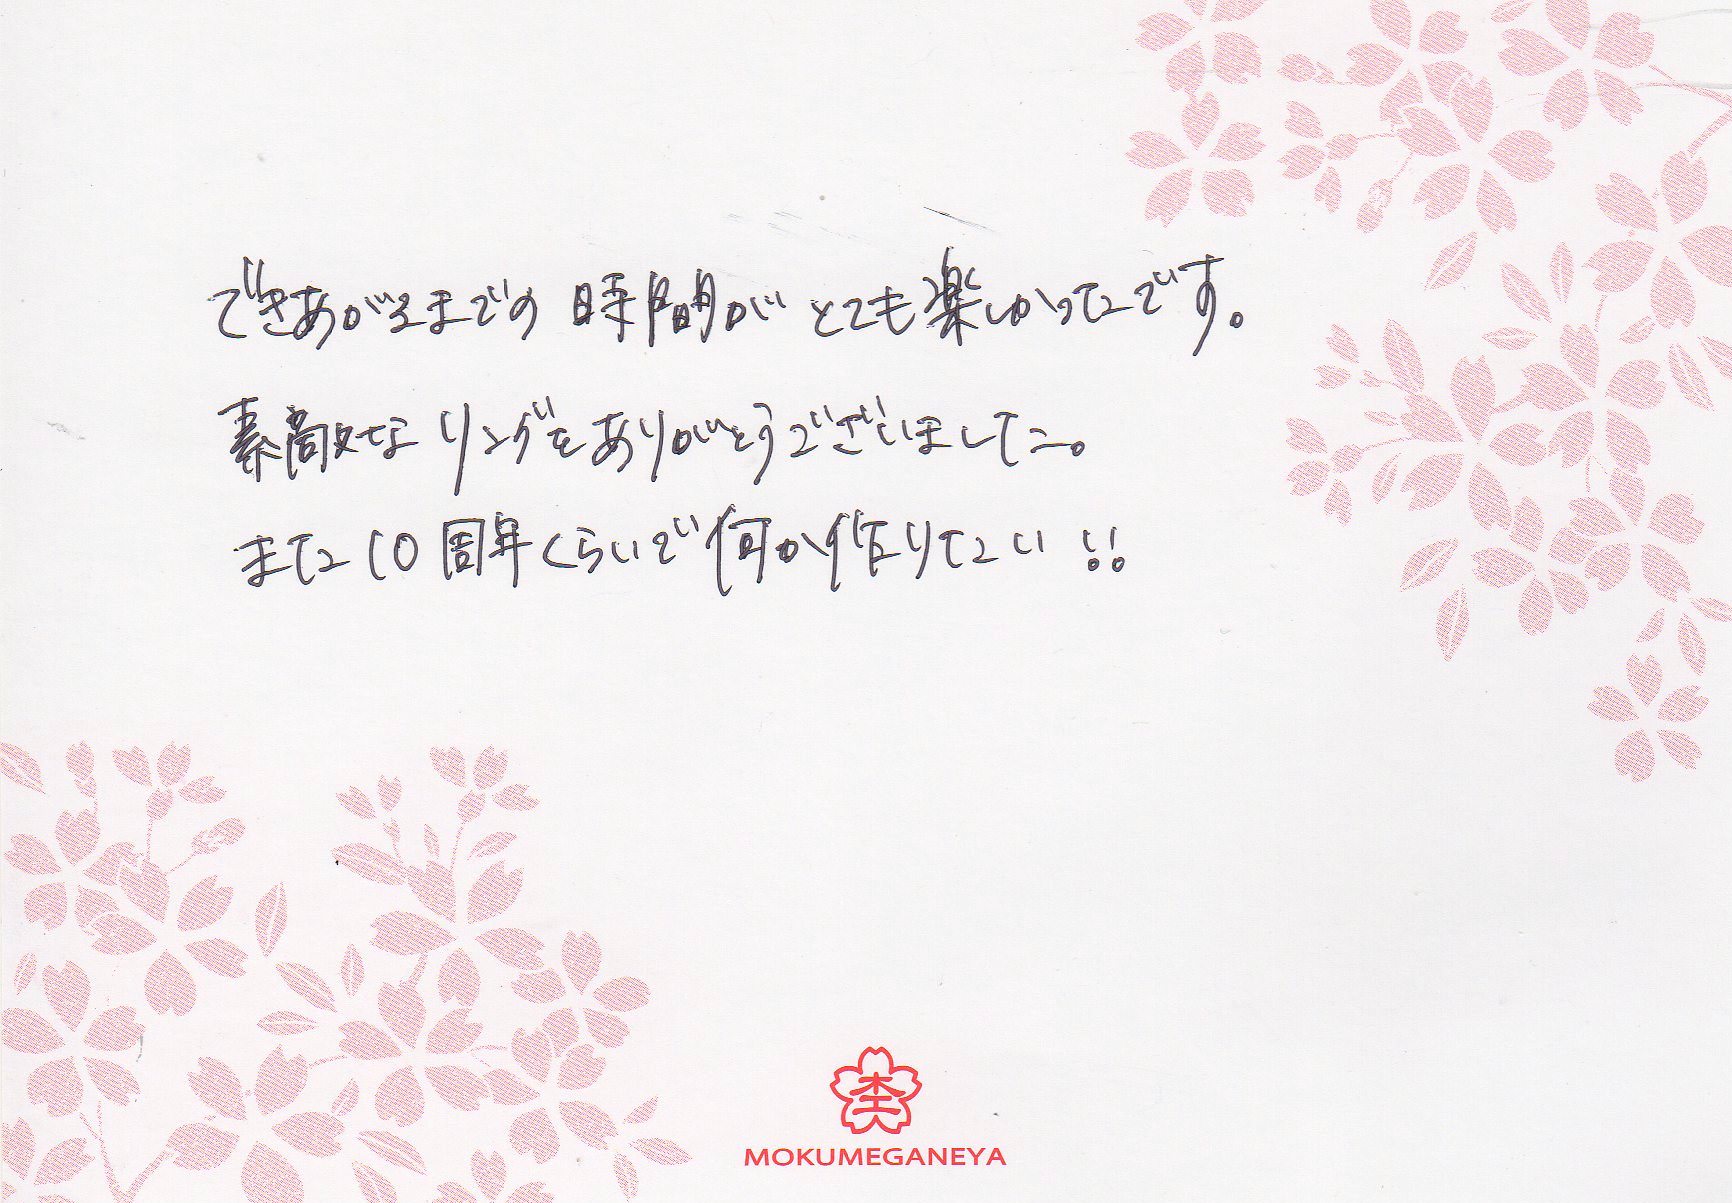 できあがるまでの 時間が とても楽しかったです。
素敵な リングをありがとうございました。
また 10周年くらいで何か作りたい!!
MOKUMEGANEYA